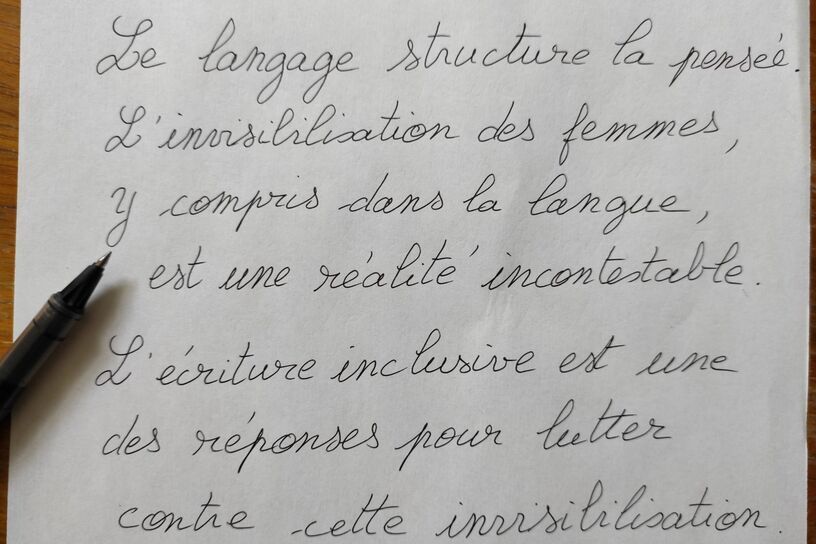 Le langage structure la pensée.
L'invisibilisation des femmes,
y compris dans la langue,
est une réalité incontestable.
L'écriture inclusive est une
des réponses pour lutter
contre cette invisibilisation.